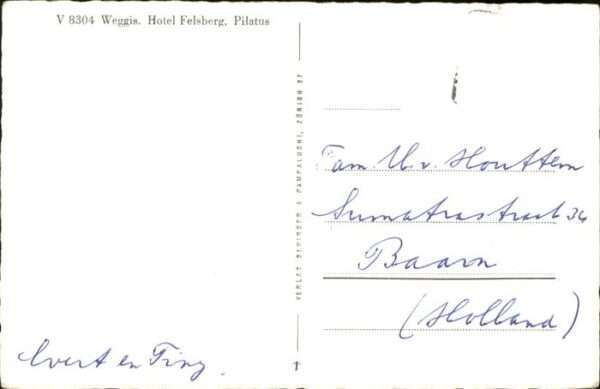 V 8304 Weggis. Hotel Felsberg, Pilatus
VERLAG BERINGER & PAMPALUCHI, ZÜRICH 27
Fam. v. Houttem
Sumatrastraat 34
Baarn
(Holland)
Evert en Tiny.